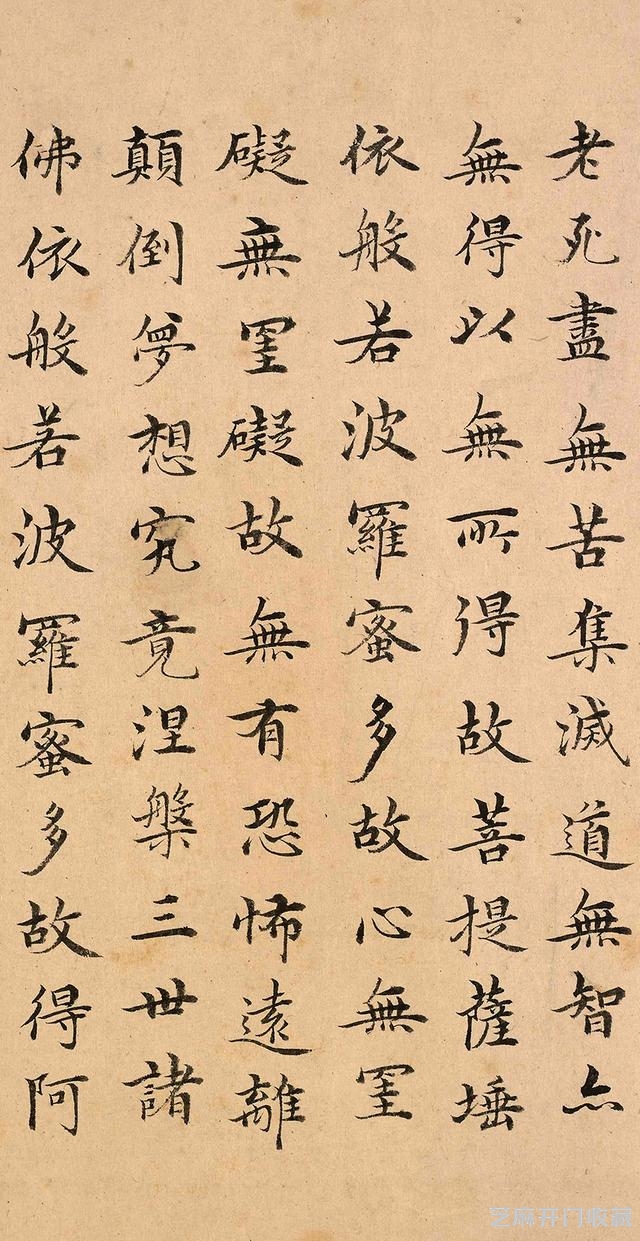 老死盡無苦集滅道無智亦
無得以無所得故菩提薩埵
依般若波羅蜜多故心無罣
礙無罣礙故無有恐怖遠離
顛倒夢想究竟涅槃三世諸
佛依般若波羅蜜多故得阿
芝麻开门收藏